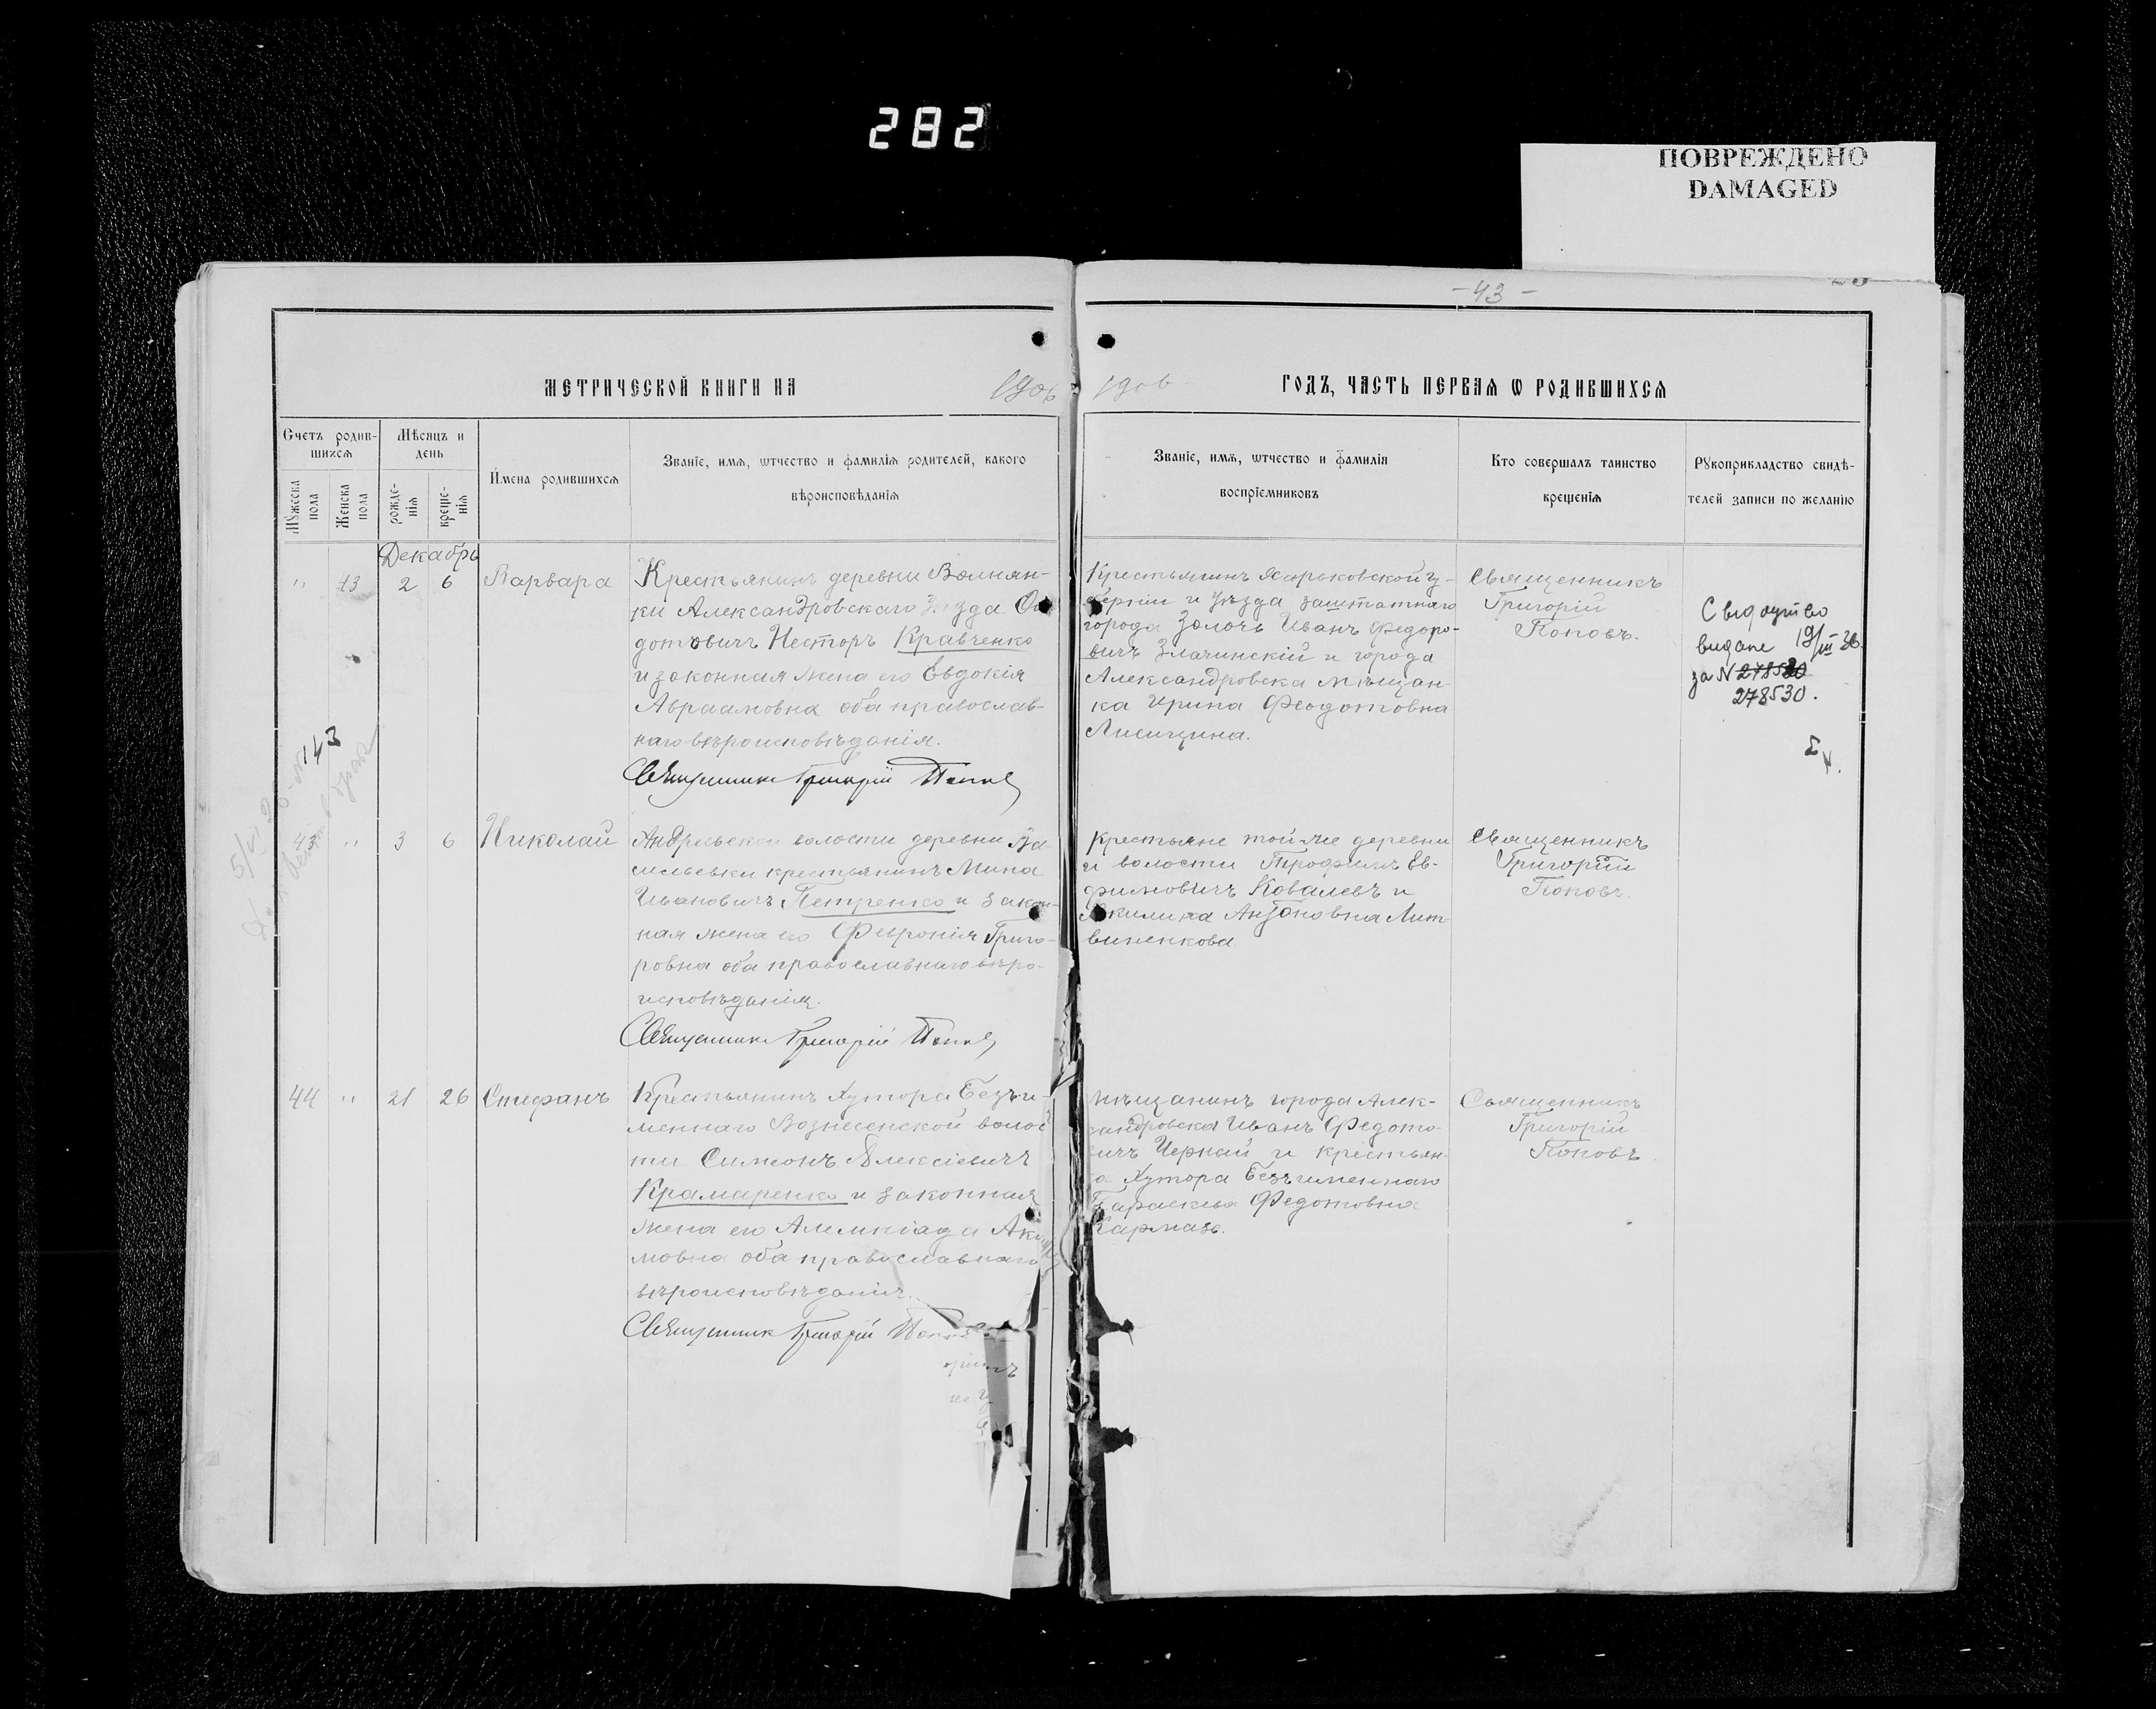 282
ПОВРЕЖДЕНО
DAMAGED
- 43 -
МЕТРИЧЕСКОЙ КНИГИ НА 1906
1906 ГОДЪ, ЧАСТЬ ПЕРВАЯ Ѡ РОДИВШИХСЯ
Счетъ родив-
шихся
Мужеска
пола
Женска
пола
Мѣсяцъ и
день
рожде-
нія
креще-
нія
Имена родившихся
Званіе, имя, ѡтчество и фамилія родителей, какого
вѣроисповѣданія
Званіе, имя, ѡтчество и фамилія
воспріемниковъ
Кто совершалъ таинство
крещенія
Рукоприкладство свидѣ-
телей записи по желанію
Декабрь
" 43 2 6 Варвара
Крестьянинъ деревни Вольнян-
ки Александровскаго уѣзда
дотовичъ Несторъ Кравченко
и законная жена его Евдокія
Авраамовна оба православ-
наго вѣроисповѣданія.
Священникъ Григорій Поповъ
Крестьянинъ Харьковской гу-
берніи и уѣзда заштатнаго
города Золочь Иванъ Федоро-
вичъ Злачинскій и города
Александровска мѣщан-
ка Ирина Феодотовна
Лисицина.
Священникъ
Григорій
Поповъ.
Свидоцтво
видане 19/III 36
за N 278520
278530.
143
43 " 3 6 Николай
волости деревни
крестьянинъ Мина
Ивановичъ Петренко и закон-
ная жена его Февронія Григо-
ровна оба православнаго вѣро-
исповѣданія.
Священникъ Григорій Поповъ
Крестьяне той же деревни
и волости Трофимъ Ев-
фимовичъ Ковалевъ и
Акилина Антоновна Лит-
виненкова
Священникъ
Григорій
Поповъ.
44 " 21 26 Стефанъ
Крестьянинъ Хутора Безъи-
меннаго Вознесенской волос
ти Симеонъ Алексіевичъ
Крамаренко и законная
жена его Аки
мовна оба православнаго
вѣроисповѣданія.
Священникъ Григорій Поповъ
Мѣщанинъ города Алек-
сандровска Иванъ Федото-
вичъ Черный и крестьян-
ка Хутора Безъименнаго
Параскева Федотовна
Кармазь.
Священникъ
Григорій
Поповъ